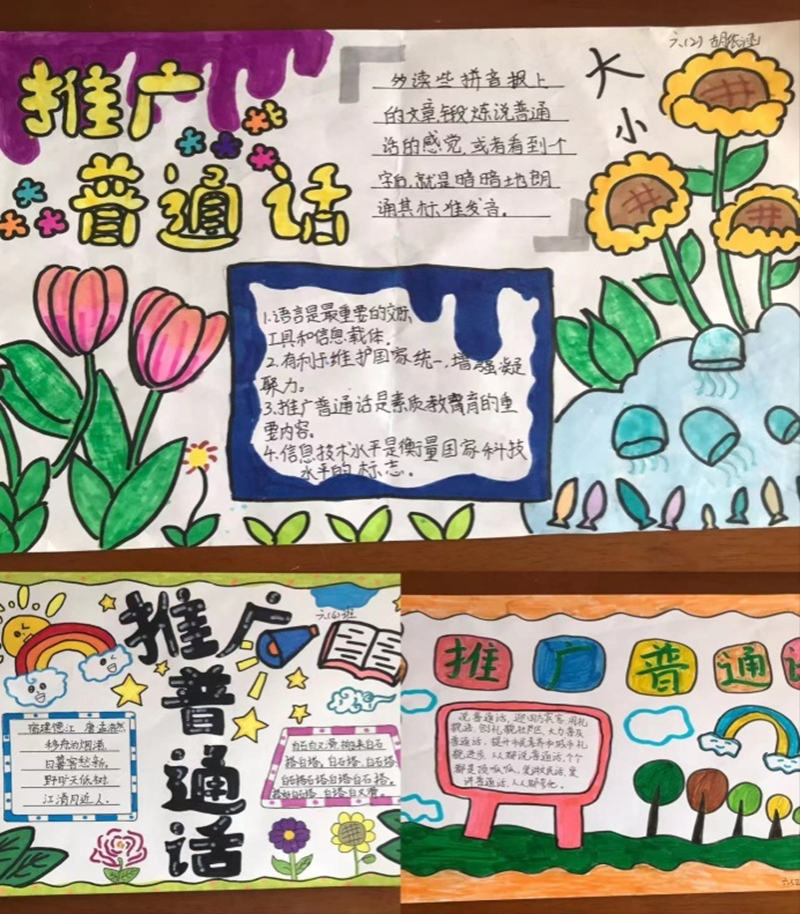 推广
普通话
六(2)
大
小
多读些拼音报上
的文章锻炼说普通
话的感觉,或者看到个
字后,就是暗暗地朗
诵其标准发音。
1.语言是最重要的交际
工具和信息载体。
2.有利于维护国家统一,增强凝
聚力。
3.推广普通话是素质教育的重
要内容。
4.信息技术水平是衡量国家科技
水平的标志。
推广
普
通
话
六(6)班
宿建德江 唐 孟浩然
移舟泊烟渚
日暮客愁新
野旷天低树
江清月近人。
白石白又滑,搬来白石
搭白塔,白石塔,白石
搭好白石塔,白塔白又滑。
推广普通话
说普通话,迎四方宾客,用礼
貌语
普通话,提升
人人都说普通话,个个
都是顶呱呱,爱讲
讲普通话,人人都